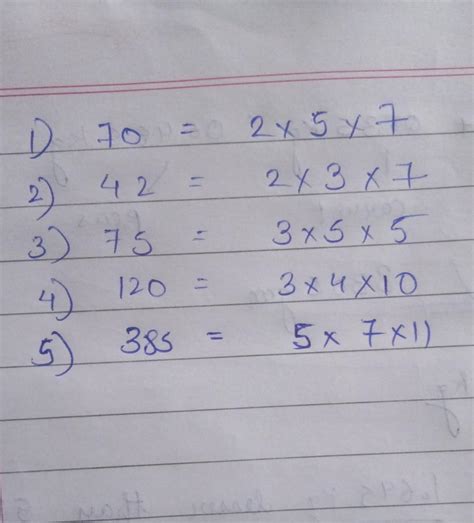 1) 70 = 2 × 5 × 7
2) 42 = 2 × 3 × 7
3) 75 = 3 × 5 × 5
4) 120 = 3 × 4 × 10
5) 385 = 5 × 7 × 11